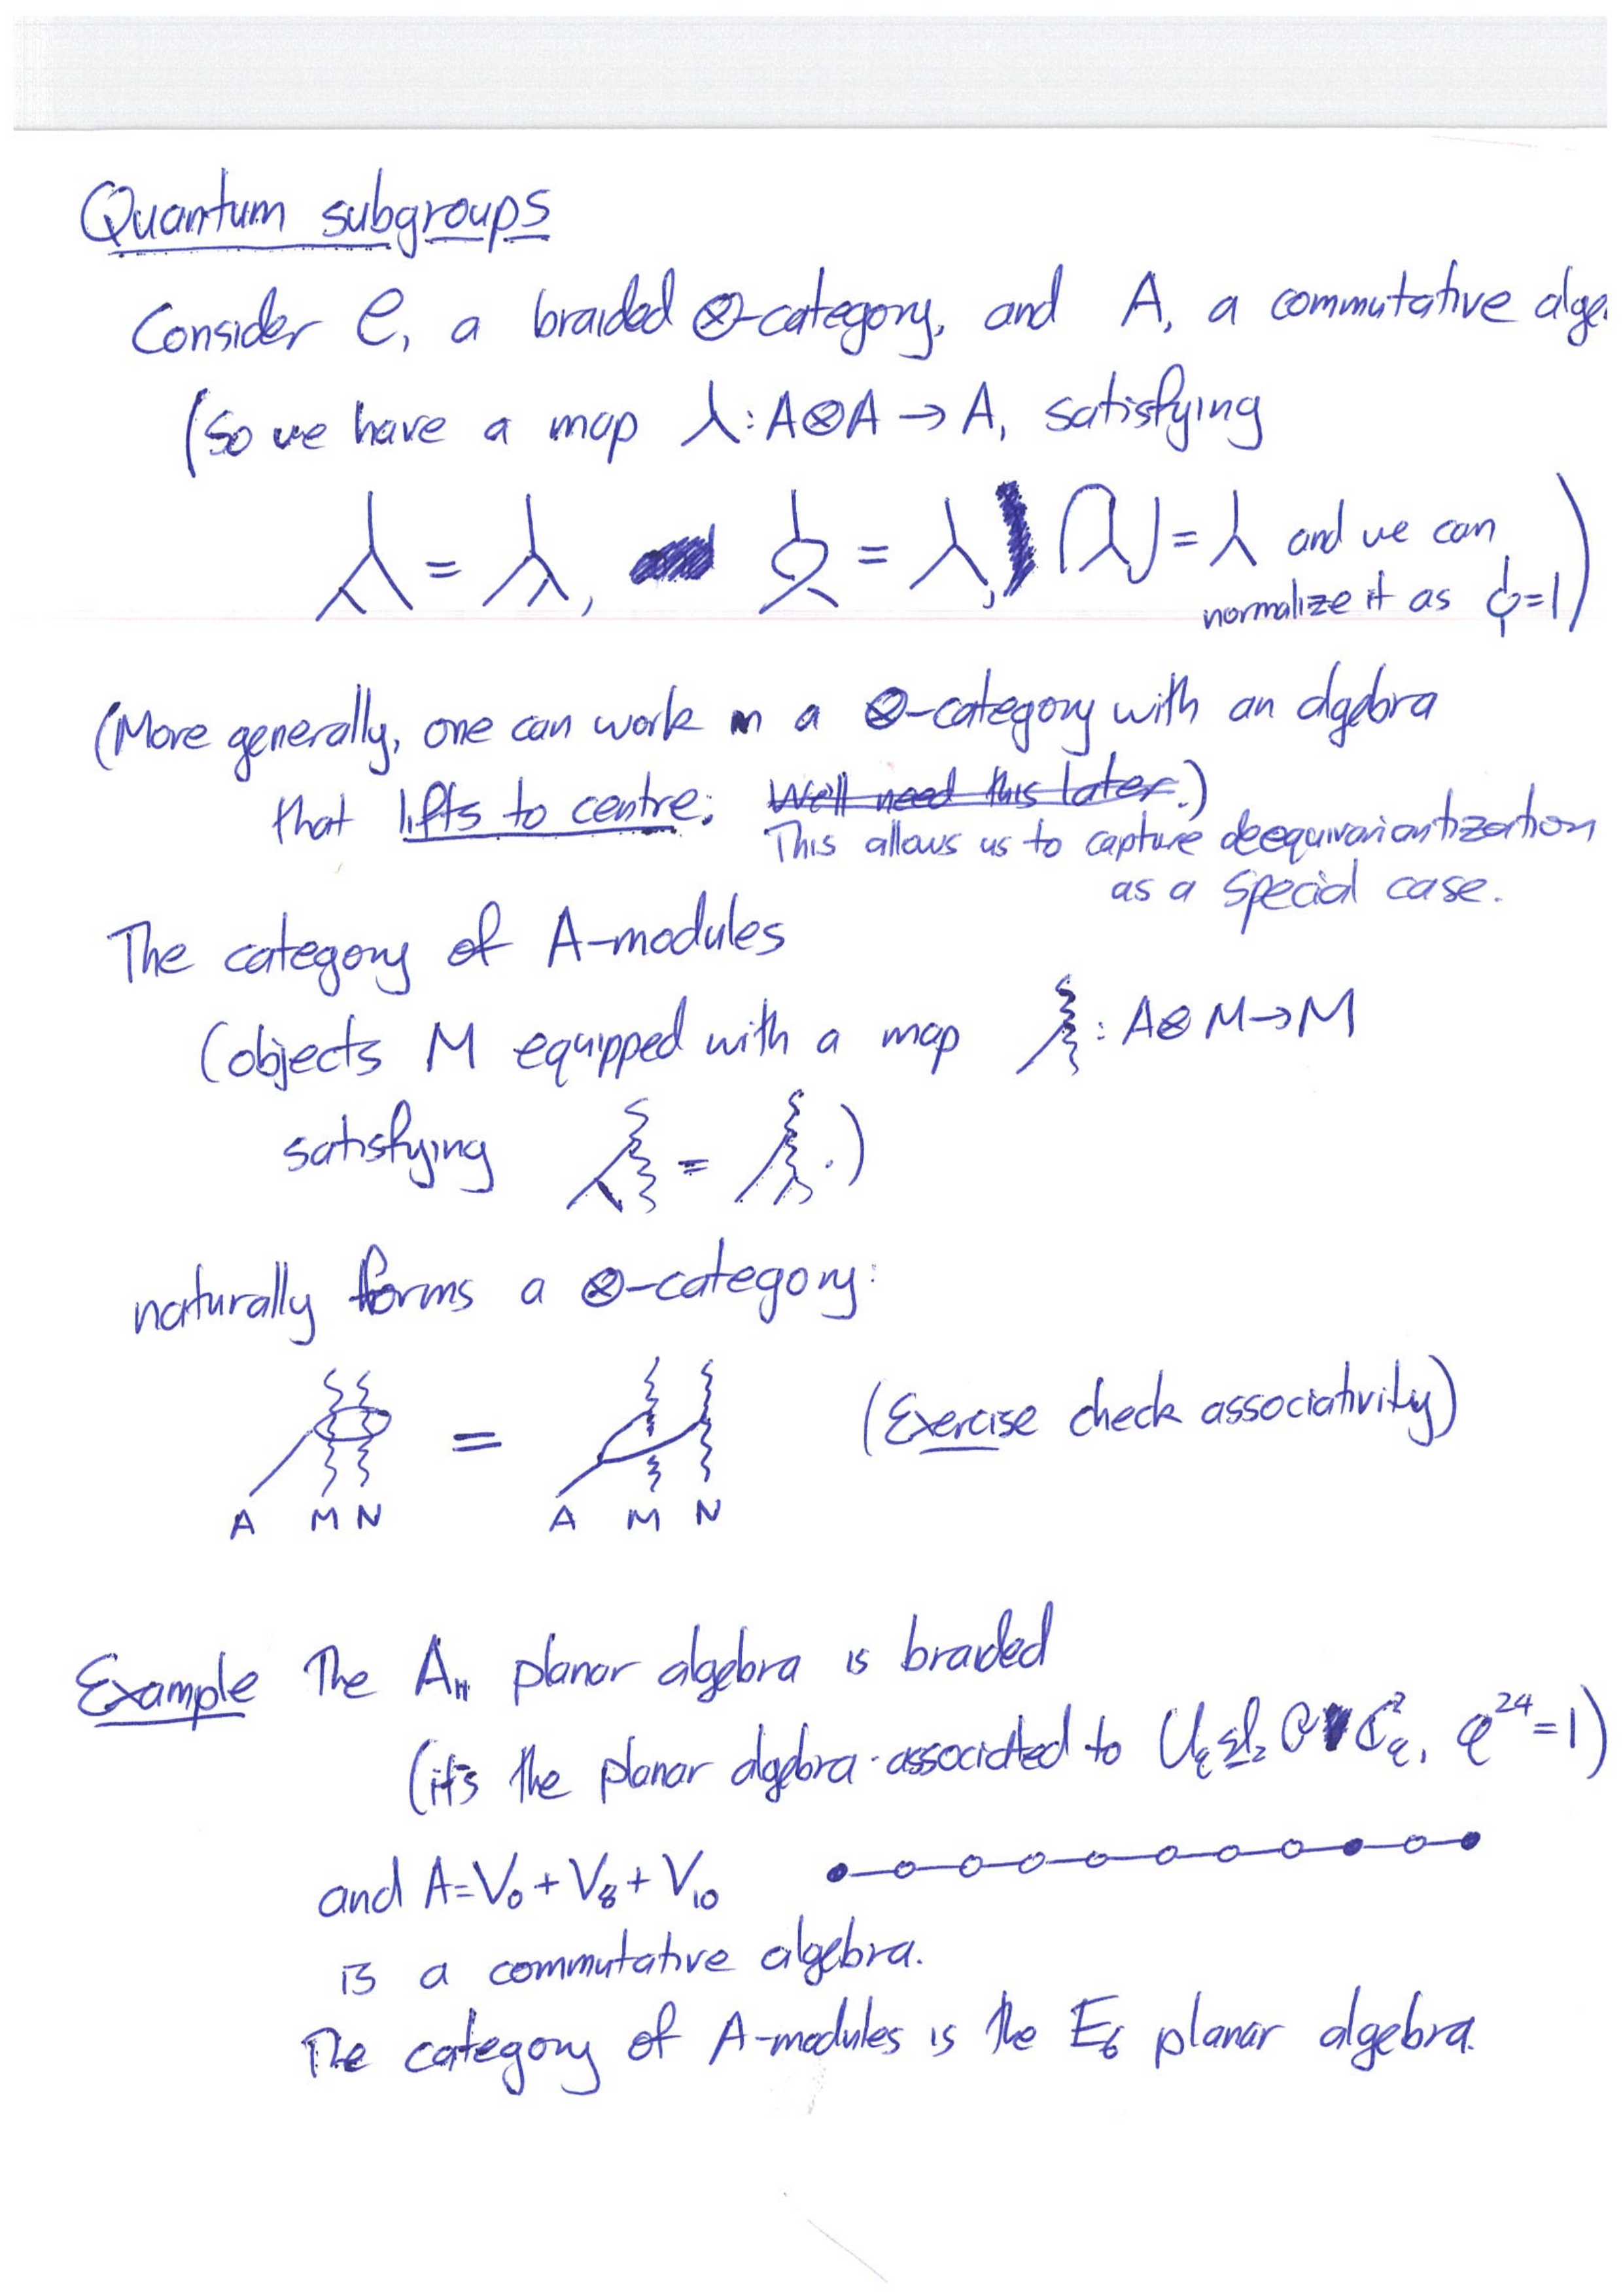 Quantum subgroups
Consider C, a braided ⊗-category, and A, a commutative alge
(So we have a map ⅄: A⊗A → A, satisfying
= , = , = and we can
normalize it as =1)
(More generally, one can work in a ⊗-category with an algebra
that lifts to centre. We'll need this later.)
This allows us to capture deequivariantization
as a special case.
The category of A-modules
(objects M equipped with a map : A⊗M→M
satisfying = .)
naturally forms a ⊗-category:
= (Exercise check associativity)
A M N A M N
Example The A₁₁ planar algebra is braided
(it's the planar algebra associated to U_q sl₂ ℂ²_q, q²⁴=1)
and A=V₀+V₈+V₁₀
is a commutative algebra.
The category of A-modules is the E₆ planar algebra.